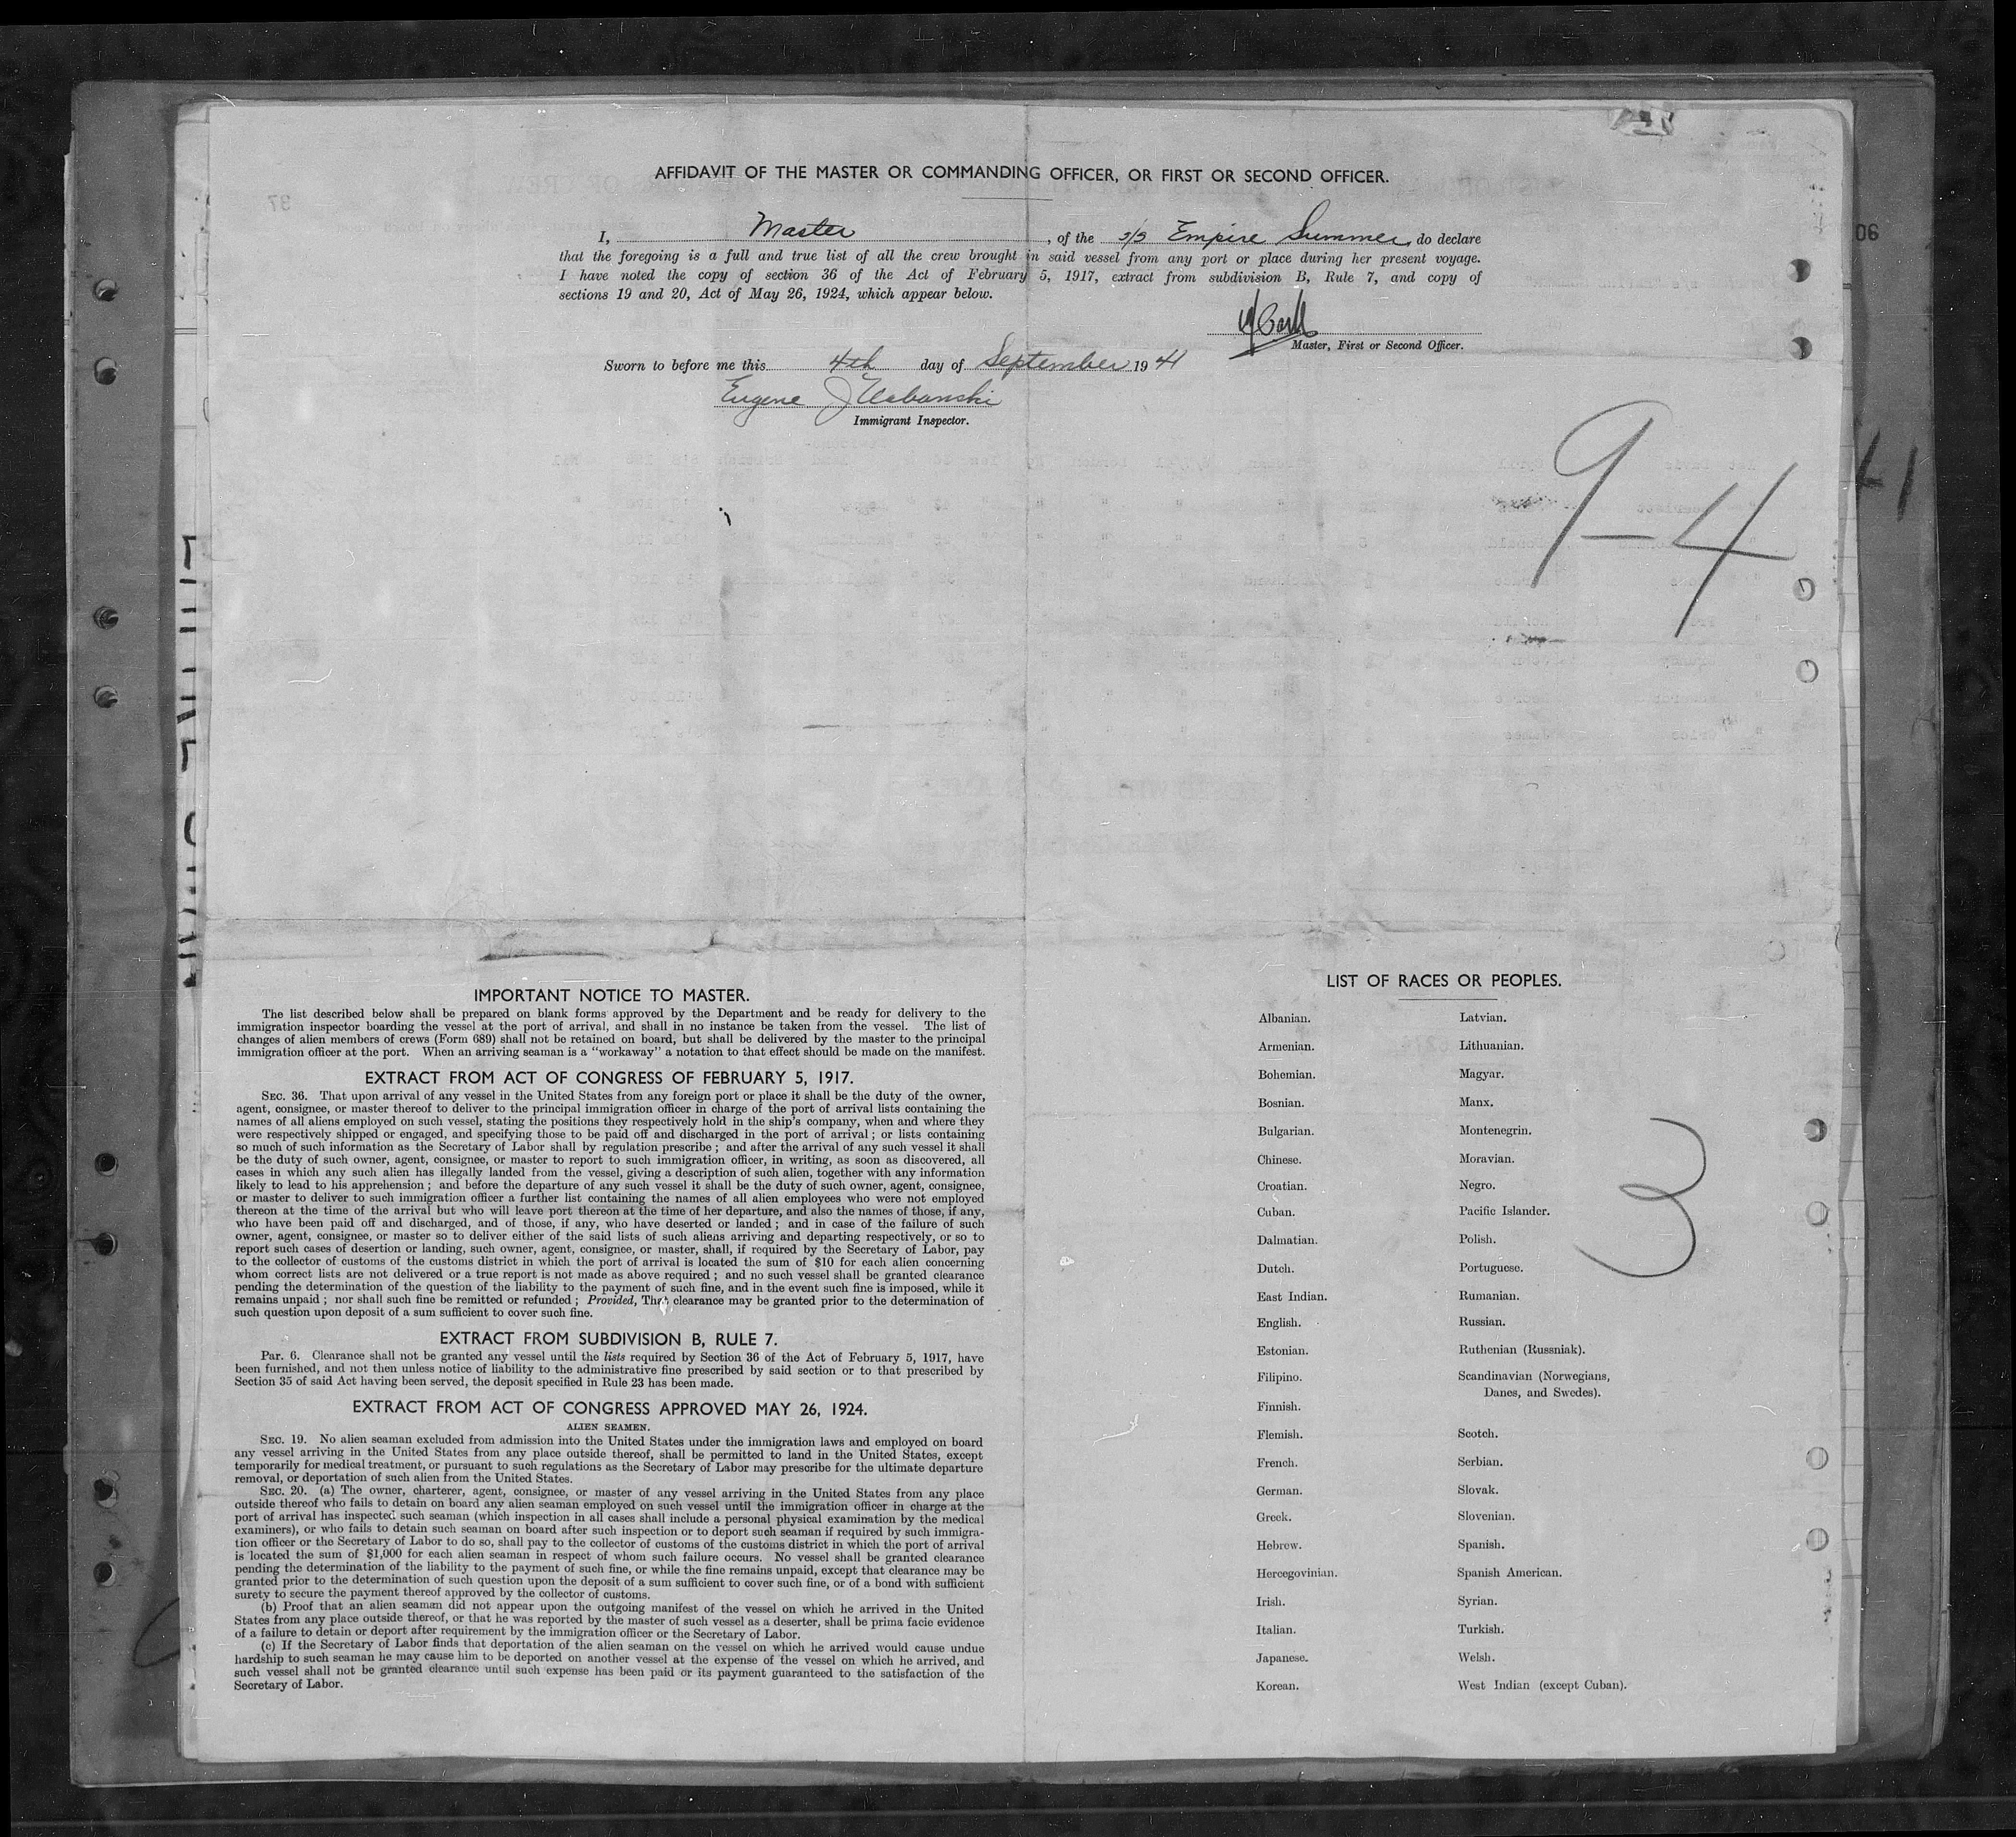 AFFIDAVIT OF THE MASTER OR COMMANDING OFFICER, OR FIRST OR SECOND OFFICER.
I, Master, of the s/s Empire Summer, do declare
that the foregoing is a full and true list of all the crew brought in said vessel from any port or place during her present voyage.
I have noted the copy of section 36 of the Act of February 5, 1917, extract from subdivision B, Rule 7, and copy of
sections 19 and 20, Act of May 26, 1924, which appear below.
Master, First or Second Officer.
Sworn to before me this 4th day of September 1941
Eugene J
Immigrant Inspector.
9-4
06
41
IMPORTANT NOTICE TO MASTER.
The list described below shall be prepared on blank forms approved by the Department and be ready for delivery to the
immigration inspector boarding the vessel at the port of arrival, and shall in no instance be taken from the vessel. The list of
changes of alien members of crews (Form 689) shall not be retained on board, but shall be delivered by the master to the principal
immigration officer at the port. When an arriving seaman is a "workaway" a notation to that effect should be made on the manifest.
EXTRACT FROM ACT OF CONGRESS OF FEBRUARY 5, 1917.
SEC. 36. That upon arrival of any vessel in the United States from any foreign port or place it shall be the duty of the owner,
agent, consignee, or master thereof to deliver to the principal immigration officer in charge of the port of arrival lists containing the
names of all aliens employed on such vessel, stating the positions they respectively hold in the ship's company, when and where they
were respectively shipped or engaged, and specifying those to be paid off and discharged in the port of arrival; or lists containing
so much of such information as the Secretary of Labor shall by regulation prescribe; and after the arrival of any such vessel it shall
be the duty of such owner, agent, consignee, or master to report to such immigration officer, in writing, as soon as discovered, all
cases in which any such alien has illegally landed from the vessel, giving a description of such alien, together with any information
likely to lead to his apprehension; and before the departure of any such vessel it shall be the duty of such owner, agent, consignee,
or master to deliver to such immigration officer a further list containing the names of all alien employees who were not employed
thereon at the time of the arrival but who will leave port thereon at the time of her departure, and also the names of those, if any,
who have been paid off and discharged, and of those, if any, who have deserted or landed; and in case of the failure of such
owner, agent, consignee, or master so to deliver either of the said lists of such aliens arriving and departing respectively, or so to
report such cases of desertion or landing, such owner, agent, consignee, or master, shall, if required by the Secretary of Labor, pay
to the collector of customs of the customs district in which the port of arrival is located the sum of $10 for each alien concerning
whom correct lists are not delivered or a true report is not made as above required; and no such vessel shall be granted clearance
pending the determination of the question of the liability to the payment of such fine, and in the event such fine is imposed, while it
remains unpaid; nor shall such fine be remitted or refunded; Provided, That clearance may be granted prior to the determination of
such question upon deposit of a sum sufficient to cover such fine.
EXTRACT FROM SUBDIVISION B, RULE 7.
Par. 6. Clearance shall not be granted any vessel until the lists required by Section 36 of the Act of February 5, 1917, have
been furnished, and not then unless notice of liability to the administrative fine prescribed by said section or to that prescribed by
Section 35 of said Act having been served, the deposit specified in Rule 23 has been made.
EXTRACT FROM ACT OF CONGRESS APPROVED MAY 26, 1924.
ALIEN SEAMEN.
SEC. 19. No alien seaman excluded from admission into the United States under the immigration laws and employed on board
any vessel arriving in the United States from any place outside thereof, shall be permitted to land in the United States, except
temporarily for medical treatment, or pursuant to such regulations as the Secretary of Labor may prescribe for the ultimate departure
removal, or deportation of such alien from the United States.
SEC. 20. (a) The owner, charterer, agent, consignee, or master of any vessel arriving in the United States from any place
outside thereof who fails to detain on board any alien seaman employed on such vessel until the immigration officer in charge at the
port of arrival has inspected such seaman (which inspection in all cases shall include a personal physical examination by the medical
examiners), or who fails to detain such seaman on board after such inspection or to deport such seaman if required by such immigra-
tion officer or the Secretary of Labor to do so, shall pay to the collector of customs of the customs district in which the port of arrival
is located the sum of $1,000 for each alien seaman in respect of whom such failure occurs. No vessel shall be granted clearance
pending the determination of the liability to the payment of such fine, or while the fine remains unpaid, except that clearance may be
granted prior to the determination of such question upon the deposit of a sum sufficient to cover such fine, or of a bond with sufficient
surety to secure the payment thereof approved by the collector of customs.
(b) Proof that an alien seaman did not appear upon the outgoing manifest of the vessel on which he arrived in the United
States from any place outside thereof, or that he was reported by the master of such vessel as a deserter, shall be prima facie evidence
of a failure to detain or deport after requirement by the immigration officer or the Secretary of Labor.
(c) If the Secretary of Labor finds that deportation of the alien seaman on the vessel on which he arrived would cause undue
hardship to such seaman he may cause him to be deported on another vessel at the expense of the vessel on which he arrived, and
such vessel shall not be granted clearance until such expense has been paid or its payment guaranteed to the satisfaction of the
Secretary of Labor.
LIST OF RACES OR PEOPLES.
Albanian. Latvian.
Armenian. Lithuanian.
Bohemian. Magyar.
Bosnian. Manx.
Bulgarian. Montenegrin.
Chinese. Moravian.
Croatian. Negro.
Cuban. Pacific Islander.
Dalmatian. Polish.
Dutch. Portuguese.
East Indian. Rumanian.
English. Russian.
Estonian. Ruthenian (Russniak).
Filipino. Scandinavian (Norwegians,
Danes, and Swedes).
Finnish.
Flemish. Scotch.
French. Serbian.
German. Slovak.
Greek. Slovenian.
Hebrew. Spanish.
Hercegovinian. Spanish American.
Irish. Syrian.
Italian. Turkish.
Japanese. Welsh.
Korean. West Indian (except Cuban).
3